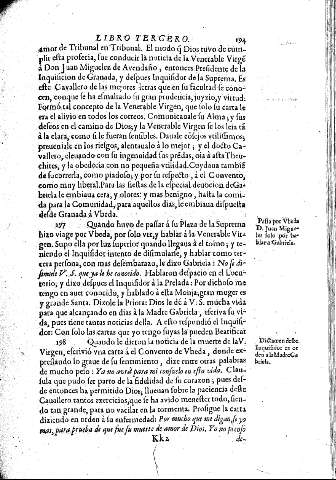 LIBRO TERCERO. 194
amor de Tribunal en Tribunal. El modo q̃ Dios tuvo de cum-
plir esta profecia, fue conducir la noticia de la Venerable Virgẽ
à Don Juan Miguelez de Avendaño, entonces Presidente de la
Inquisicion de Granada, y despues Inquisidor de la Suprema. Es
este Cavallero de las mejores letras que en su facultad se cono-
cen, aunque le ha esmaltado su gran prudencia, juyzio, y virtud.
Formò tal concepto de la Venerable Virgen, que solo su carta le
era el alivio en todos los correos. Comunicavale su Alma; y sus
deseos en el camino de Dios; y la Venerable Virgen se los leia
à la clara, como si le fueran sensibles. Davale consejos utilissimos,
preveniale en los riesgos, alentavalo à lo mejor; y el docto Ca-
vallero,
chites, y la obedecia con no pequeña utilidad. Cuydava tambiẽ
de socorrerla, como piadoso; y por su respecto, à el Convento,
como muy liberal. Para las fiestas de la especial devocion de Ga-
briela le embiava cera, y olores: y mas benigno, hasta la comi-
da para la Comunidad, para aquellos dias, le embiava dispuesta
desde Granada à Vbeda.
197 Quando huvo de passar à su Plaza de la Suprema
hizo viage por Vbeda, por solo vèr, y hablar à la Venerable Vir-
gen. Supo ella por luz superior quando llegava à el torno; y te-
niendo el Inquisidor intento de dissimularse, y hablar como ter-
cera persona, con mas desembarazo, le dixo Gabriela: No se dis-
simule V. S. que ya le he conocido. Hablaron despacio en el Locu-
torio, y dixo despues el Inquisidor à la Prelada: Por dichoso me
tengo en aver conocido, y hablado à esta Monja, gran muger es
y grande Santa. Dixole la Priora: Dios le dè à V. S. mucha vida
para que alcançando en dias à la Madre Gabriela, escriva su vi-
da, pues tiene tantas noticias della. A esto respondiò el Inquisi-
dor: Con solo las cartas que yo tengo suyas la pueden Beatificar
198 Quando le dieron la noticia de la muerte de la V.
Virgen, escriviò vna carta à el Convento de Vbeda, donde ex-
pressando lo grave de su sentimiento, dize entre otras palabras
de mucho peso: Ya no avrà para mi consuelo en esta vida. Clau-
sula que pudo ser parte de la fidelidad de su corazon; pues des-
de entonces ha permitido Dios, lluevan sobre la paciencia deste
Cavallero tantos exercicios, que le ha avido menester todo, sien-
do tan grande, para no vacilar en la tormenta. Prosigue la carta
diziendo en orden à su enfermedad: Por mucho que me digan, se yo
mas, para prueba de que fue su muerte de amor de Dios. Yo no puedo
Kk2 de-
Passa por Vbeda
D. Juan Migue-
lez solo por ha-
blar à Gabriela.
Dictamen deste
Inquisidor en or-
den à la Madre Ga-
briela.